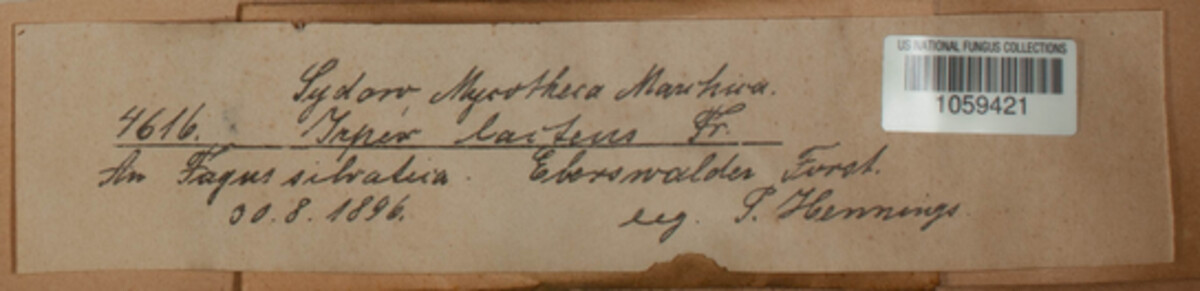 Sydow Mycotheca Marchica.
4616. Irpex lacteus Fr.
An Fagus silvatica. Eberswalder Forst.
30.8.1896. leg. P. Hennings
US NATIONAL FUNGUS COLLECTIONS
1059421